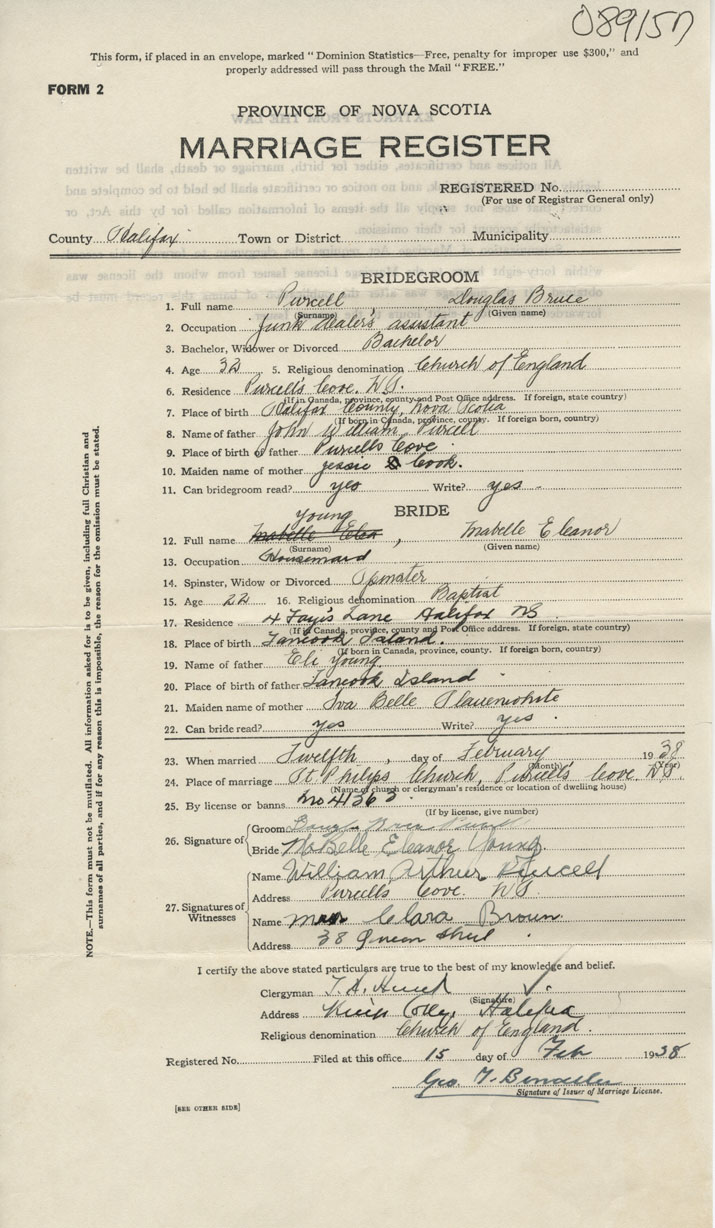 089157
This form, if placed in an envelope, marked "Dominion Statistics—Free, penalty for improper use $300," and
properly addressed will pass through the Mail "FREE."
FORM 2
PROVINCE OF NOVA SCOTIA
MARRIAGE REGISTER
REGISTERED No.
(For use of Registrar General only)
County Halifax Town or District Municipality
BRIDEGROOM
1. Full name Purcell Douglas Bruce
(Surname) (Given name)
2. Occupation Junk dealer's asistant
3. Bachelor, Widower or Divorced Bachelor
4. Age 32 5. Religious denomination Church of England
6. Residence Purcell's Cove. N.S.
(If in Canada, province, county and Post Office address. If foreign, state country)
7. Place of birth Halifax County, Nova Scotia
(If born in Canada, province, county. If foreign born, country)
8. Name of father John William Purcell
9. Place of birth of father Purcells Cove
10. Maiden name of mother Jessie Cook.
11. Can bridegroom read? yes Write? yes
BRIDE
Young
12. Full name Mabelle Elea, Mabelle Eleanor
(Surname) (Given name)
13. Occupation Housemaid
14. Spinster, Widow or Divorced Spinster
15. Age 22 16. Religious denomination Baptist
17. Residence 4 Lane Halifax NS
(If in Canada, province, county and Post Office address. If foreign, state country)
18. Place of birth Tancook Island.
(If born in Canada, province, county. If foreign born, country)
19. Name of father Eli Young
20. Place of birth of father Tancook Island
21. Maiden name of mother Iva Belle
22. Can bride read? yes Write? yes
23. When married Twelfth, day of February 1938
(Month) (Year)
24. Place of marriage St Philips Church, Purcell's Cove N.S.
(Name of church or clergyman's residence or location of dwelling house)
25. By license or banns No 41363
(If by license, give number)
26. Signature of
Groom Bruce
Bride MaBelle Eleanor Young.
27. Signatures of Witnesses
Name William Arthur Purcell
Address Purcells Cove. N.S.
Name Clara Brown
Address 38 Queen Street
I certify the above stated particulars are true to the best of my knowledge and belief.
Clergyman
(Signature)
Address Halifax
Religious denomination Church of England.
Registered No. Filed at this office 15 day of Feb 1938
Geo.
Signature of Issuer of Marriage License.
[SEE OTHER SIDE]
NOTE.—This form must not be mutilated. All information asked for is to be given, including full Christian and
surnames of all parties, and if for any reason this is impossible, the reason for the omission must be stated.